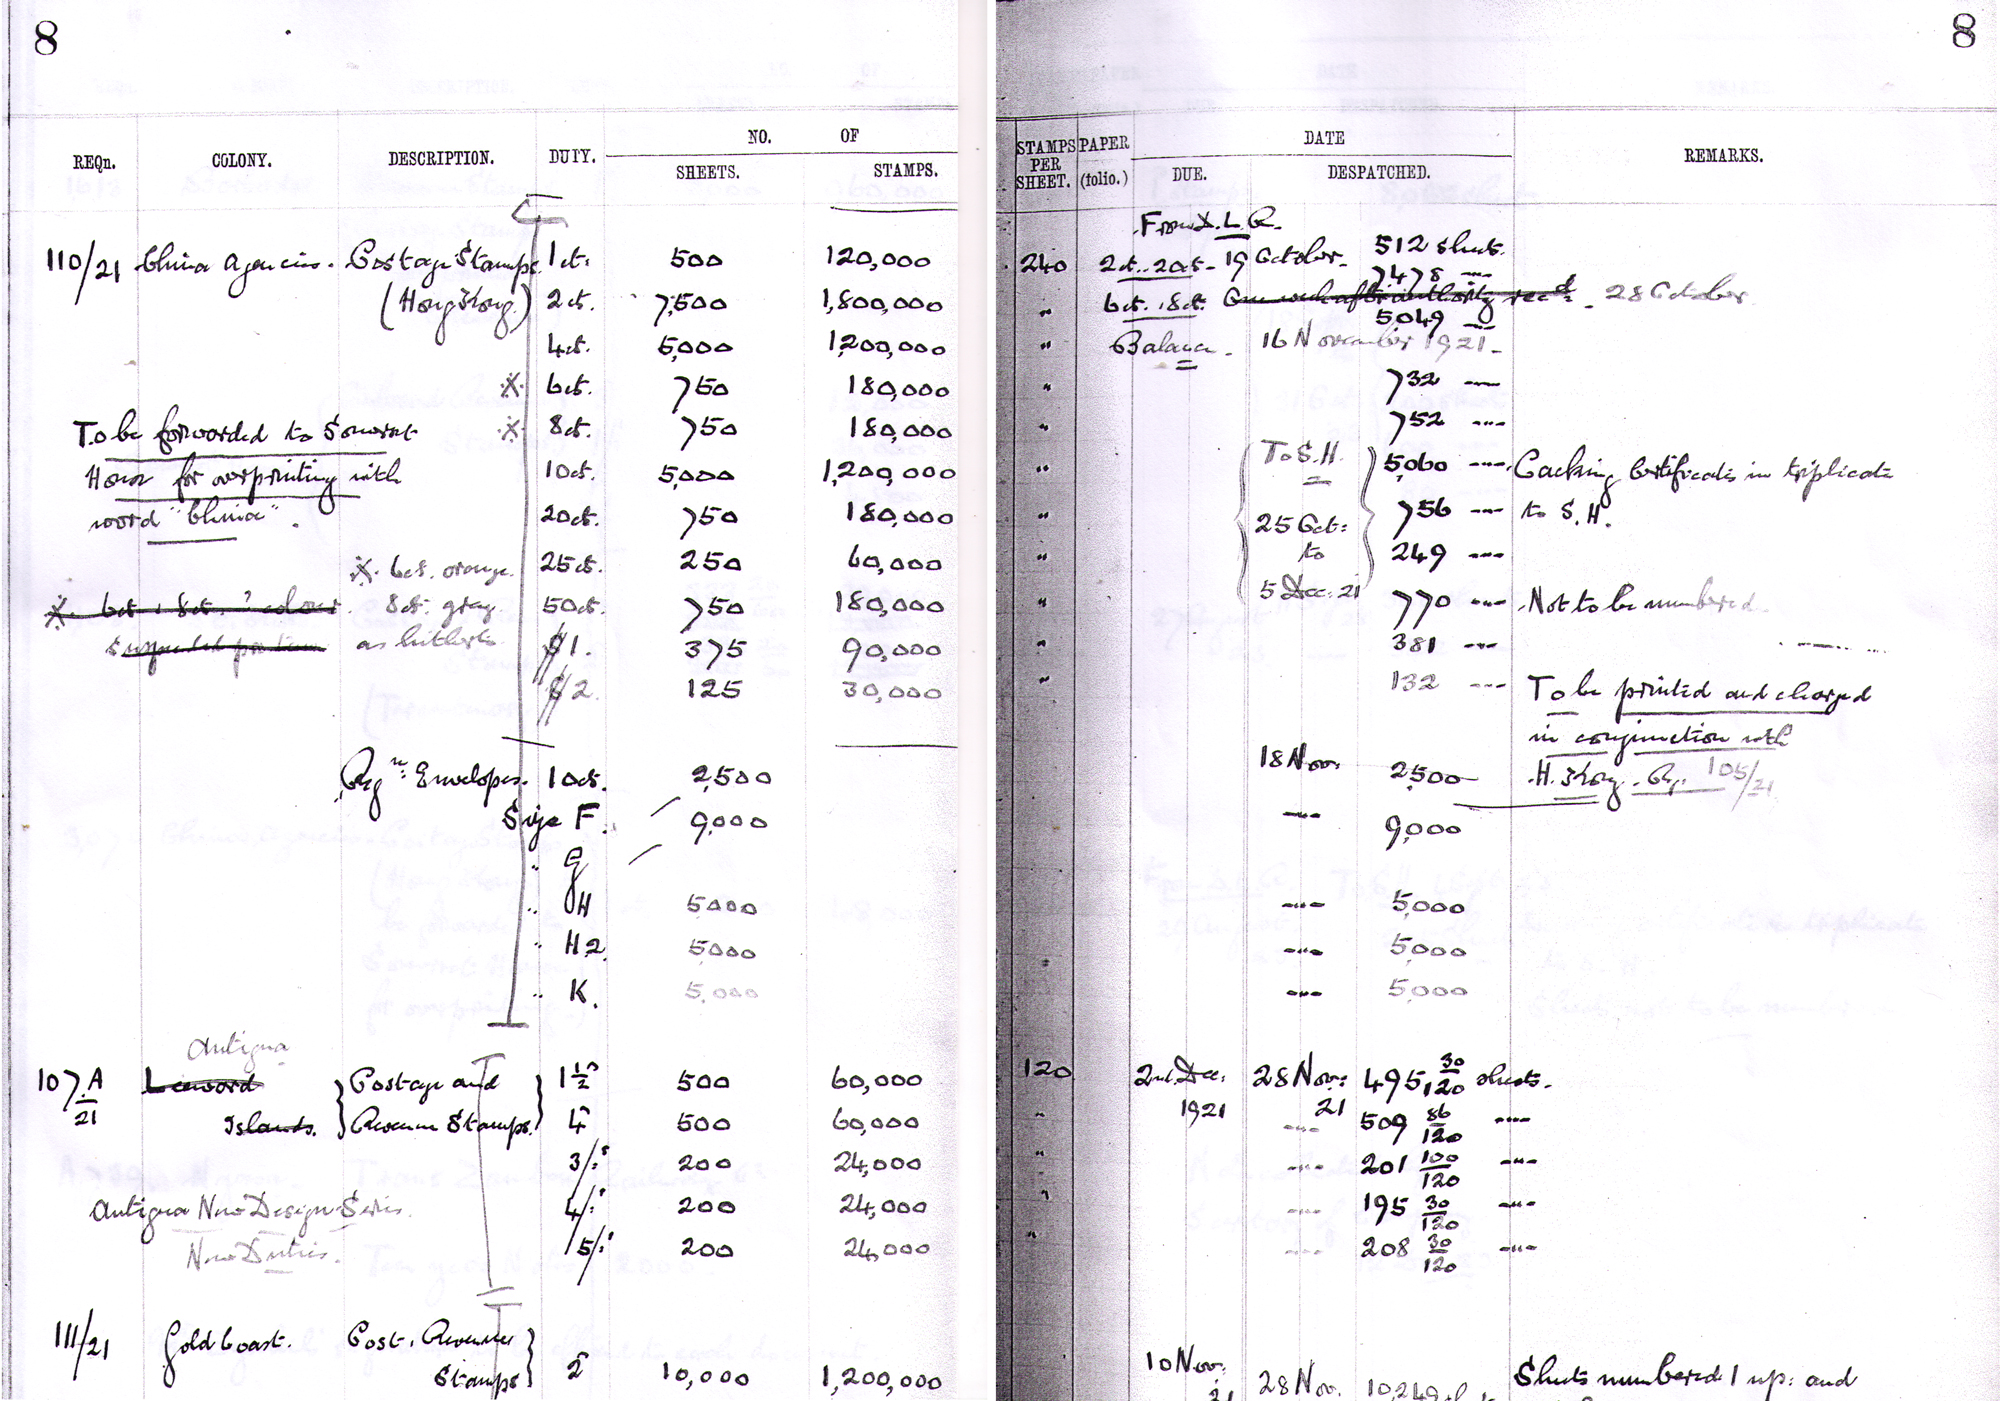 8
8
REQn. COLONY. DESCRIPTION. DUTY. NO. OF
SHEETS. STAMPS.
110/21 China Agencies. Postage Stamps 1ct. 500 120,000
(Hong Kong) 2ct. 7,500 1,800,000
4ct. 5,000 1,200,000
6ct. 750 180,000
To be forwarded to Somerset 8ct. 750 180,000
House for overprinting with 10ct. 5,000 1,200,000
word "China". 20ct. 750 180,000
6ct. orange. 25ct. 250 60,000
6ct. & 8ct. ? colour 8ct. gray. 50ct. 750 180,000
as hitherto. $1. 375 90,000
$2. 125 30,000
Regn: Envelopes. 10ct.
Size F. 2,500
" G 9,000
" H 5000
" H2 5000
" K. 5,000
Antigua
107A/21 Leeward Postage and 1½ 500 60,000
Islands. Revenue Stamps. 4 500 60,000
3/- 200 24,000
Antigua New Design Series. 4/- 200 24,000
New Duties. 5/- 200 24,000
111/21 Gold Coast. Post. Revenue
Stamps 2 10,000 1,200,000
STAMPS PER SHEET. PAPER (folio.) DATE
DUE. DESPATCHED. REMARKS.
From D.L.R.
240 2ct. 20ct. 19 October. 512 sheets.
7478 -"-
" 6ct. 8ct. One week after authority recd. 28 October.
5049 -"-
" Balance. 16 November 1921.
" 732 -"-
" 752 -"-
" To S.H. 5,060 -"- Packing Certificates in triplicate
" 25 Oct: 756 -"- to S.H.
" to 249 -"-
" 5 Dec. 21 770 -"- Not to be numbered.
" 381 -"-
" 132 -"- To be printed and charged
in conjunction with
18 Nov. 2,500 H. Kong. Rq. 105/21
-"- 9,000
-"- 5,000
-"- 5,000
-"- 5,000
120 2nd Dec. 28 Nov: 495 30/120 sheets.
" 1921 21 509 86/120 -"-
" -"- 201 100/120 -"-
" -"- 195 30/120 -"-
" -"- 208 30/120 -"-
10 Nov. Sheets numbered 1 up: and
21 28 Nov. 10,249